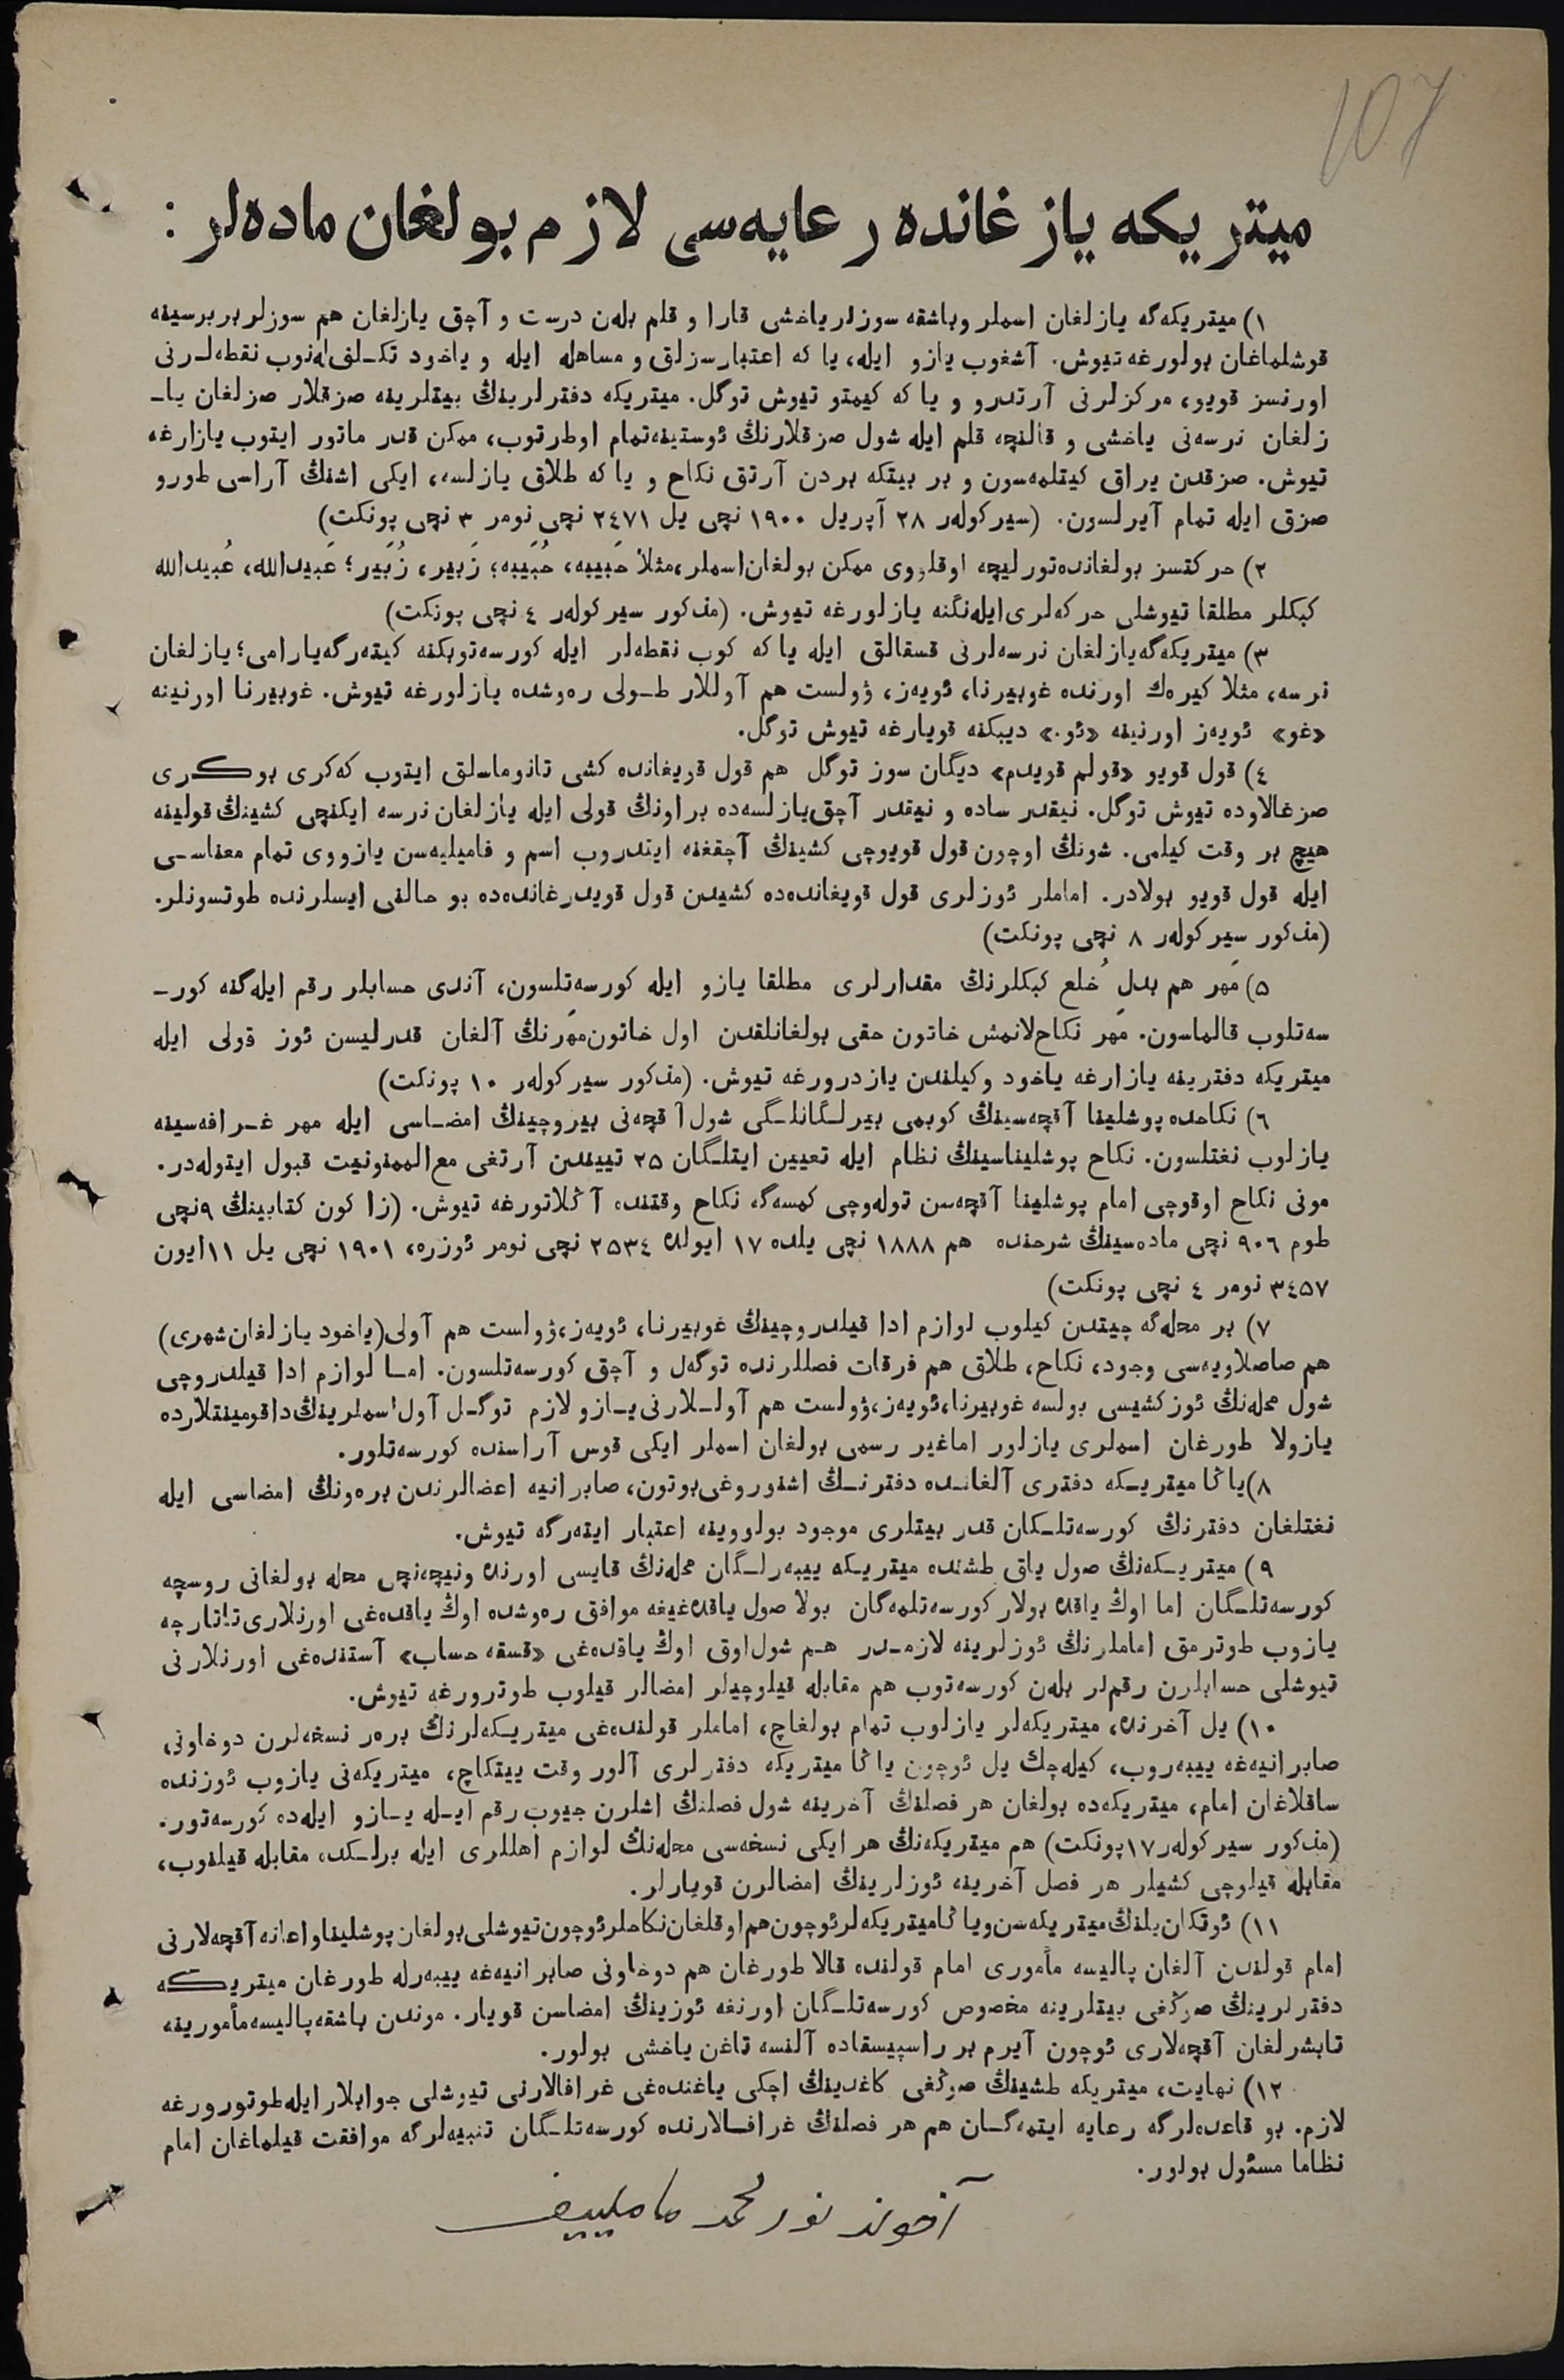 107
میتریکه یازغانده رعایه‌سی لازم بولغان ماده‌لر :
۱) میتریکه‌گه یازلغان اسملر وباشقه سوزلر یاخشی قارا و قلم بله‌ن درست و آچق یازلغان هم سوزلر بربرسینه
قوشلماغان بولورغه تیوش. آشغوب یازو ایله، یا که اعتبارسزلق و مساهله ایله و یاخود تکـلفـله‌نوب نقطه‌لـرنی
اورنسز قویو، مرکزلرنی آرتدرو و یا که کیمتو تیوش توگل. میتریکه دفترلرینڭ بیتلرینه صزقلار صزلغان یاـ
زلغان نرسه‌نی یاخشی و قالنچه قلم ایله شول صزقلارنڭ ئوستینه‌تمام اوطرتوب، ممکن قدر ماتور ایتوب یازارغه
تیوش. صزقدن یراق کیتلمه‌سون و بر بیتکه بردن آرتق نکاح و یا که طلاق یازلسه، ایکی اشنڭ آراسی طورو
صزق ایله تمام آیرلسون. (سیرکوله‌ر ۲۸ آپریل ۱۹۰۰ نچی یل ۲٤۷۱ نچی نومر ۳ نچی پونکت)
۲) حرکتسز بولغانده‌تورلیچه اوقلووی ممکن بولغان‌اسملر،مثلا حَبیبه، حُبَیبه؛ زَبیر، زُبَیر؛ عَبیدالله، عُبیدالله
کبکلر مطلقا تیوشلی حرکه‌لری‌ایله‌نگنه یازلورغه تیوش. (مذکور سیرکوله‌ر ٤ نچی پونکت)
۳) میتریکه‌گه‌یازلغان نرسه‌لرنی قسقالق ایله یا که کوب نقطه‌لر ایله کورسه‌توبکنه کیته‌رگه‌یارامی؛ یازلغان
نرسه، مثلا کیره‌ك اورنده غوبیرنا، ئویه‌ز، ۋولست هم آوللار طـولی ره‌وشده یازلورغه تیوش. غوبیرنا اورنینه
«غو» ئویه‌ز اورنینه «ئو.» دیبکنه قویارغه تیوش توگل.
٤) قول قویو «قولم قویدم» دیگان سوز توگل هم قول قویغانده کشی تانوماسلق ایتوب که‌کری بوکـری
صزغالاوده تیوش توگل. نیقدر ساده و نیقدر آچق‌یازلسه‌ده براونڭ قولی ایله یازلغان نرسه ایکنچی کشینڭ قولینه
هیچ بر وقت کیلمی. شونڭ اوچون قول قویوچی کشینڭ آچقغنه ایتدروب اسم و فامیلیه‌سن یازووی تمام معناسـی
ایله قول قویو بولادر. اماملر ئوزلری قول قویغانده‌ده کشیدن قول قویدرغانده‌ده بو حالنی ایسلرنده طوتسونلر.
(مذکور سیرکوله‌ر ۸ نچی پونکت)
۵) مَهر هم بدلِ خُلع کبکلرنڭ مقدارلری مطلقا یازو ایله کورسه‌تلسون، آندی حسابلر رقم ایله‌گنه کورـ
سه‌تلوب قالماسون. مَهر نکاح‌لانمش خاتون حقی بولغانلقدن اول خاتون‌مَهرنڭ آلغان قدرلیسن ئوز قولی ایله
میتریکه دفترینه یازارغه یاخود وکیلندن یازدرورغه تیوش. (مذکور سیرکوله‌ر ۱۰ پونکت)
٦) نکاحده پوشلینا آقچه‌سینڭ کوبمی بیرلـگانلـگی شول آقچه‌نی بیروچینڭ امضـاسی ایله مهر غـرافه‌سینه
یازلوب نغتلسون. نکاح پوشلیناسینڭ نظام ایله تعیین ایتلـگان ۲۵ تییندن آرتغی مع‌الممنونیت قبول ایتوله‌در.
مونی نکاح اوقوچی امام پوشلینا آقچه‌سن توله‌وچی کمسه‌گه نکاح وقتنده آڭلاتورغه تیوش. (زاکون کتابینڭ ۹نچی
طوم ۹۰٦ نچی ماده‌سینڭ شرحنده هم ۱۸۸۸ نچی یلده ۱۷ ایولده ۲۵۳٤ نچی نومر ئوزره، ۱۹۰۱ نچی یل ۱۱ایون
۳٤۵۷ نومر ٤ نچی پونکت)
۷) بر محله‌گه چیتدن کیلوب لوازم ادا قیلدروچینڭ غوبیرنا، ئویه‌ز،ۋولست هم آولی(یاخود یازلغان‌شهری)
هم صاصلاویه‌سی وجود، نکاح، طلاق هم فرقات فصللرنده توگه‌ل و آچق کورسه‌تلسون. امـا لوازم ادا قیلدروچی
شول محله‌نڭ ئوزکشیسی بولسه غوبیرنا،ئویه‌ز،ۋولست هم آولـلارنی یـازو لازم توگـل آول اسملرینڭ‌داقومینتلارده
یازولا طورغان اسملری یازلور اماغیر رسمی بولغان اسملر ایکی قوس آراسنده کورسه‌تلور.
۸)یاڭا میتریـکه دفتری آلغانـده دفترنـڭ اشنوروغی‌بوتون، صابرانیه اعضالرندن بره‌ونڭ امضاسی ایله
نغتلغان دفترنڭ کورسه‌تلـکان قدر بیتلری موجود بولووینه اعتبار ایته‌رگه تیوش.
۹) میتریـکه‌نڭ صول یاق طشنده میتریـکه ییبه‌رلـگان محله‌نڭ قایسی اورنده ونیچه‌نچی محله بولغانی روسچه
کورسه‌تلـگان اما اوڭ یاقده بولار کورسه‌تلمه‌گان بولا صول یاقده‌غیغه موافق ره‌وشده اوڭ یاقده‌غی اورنلاری‌تاتارچه
یازوب طوترمق اماملرنڭ ئوزلرینه لازمـدر هـم شول‌اوق اوڭ یاقده‌غی «قسقه حساب» آستنده‌غی اورنلارنی
تیوشلی حسابلرن رقملر بله‌ن کورسه‌توب هم مقابله قیلوچیلر امضالر قیلوب طوترورغه تیوش.
۱۰) یل آخرنده، میتریکه‌لر یازلوب تمام بولغاچ، اماملر قولنده‌غی میتریـکه‌لرنڭ بره‌ر نسخه‌لرن دوخاونی
صابرانیه‌غه ییبه‌روب، کیله‌چك یل ئوچون یاڭا میتریکه دفترلری آلور وقت ییتکاچ، میتریکه‌نی یازوب ئوزنده
ساقلاغان امام، میتریکه‌ده بولغان هر فصلنڭ آخرینه شول فصلنڭ اشلرن جیوب رقم ایـله یـازو ایله‌ده کورسه‌تور.
(مذکور سیرکوله‌ر۱۷پونکت) هم میتریکه‌نڭ هر ایکی نسخه‌سی محله‌نڭ لوازم اهللری ایله برلـکده مقابله قیلنوب،
مقابله قیلوچی کشیلر هر فصل آخرینه ئوزلرینڭ امضالرن قویارلر.
۱۱) ئوتکان‌یلنڭ‌میتریکه‌سن‌ویاڭامیتریکه‌لرئوچون‌هم‌اوقلغان‌نکاحلرئوچون‌تیوشلی‌بولغان‌پوشلیناواعانه آقچه‌لارنی
امام قولندن آلغان پالیسه مأموری امام قولنده قالا طورغان هم دوخاونی صابرانیه‌غه ییبه‌رله طورغان میتریـکه
دفترلرینڭ صوڭغی بیتلرینه مخصوص کورسه‌تلـگان اورنغه ئوزینڭ امضاسن قویار. موندن باشقه‌پالیسه‌مأمورینه
تابشرلغان آقچه‌لاری ئوچون آیرم بر راسپیسقاده آلنسه تاغن یاخشی بولور.
۱۲) نهایت، میتریکه طشینڭ صوڭغی کاغدینڭ اچکی یاغنده‌غی غرافالارنی تیوشلی جوابلار ایله‌طوتورورغه
لازم. بو قاعده‌لرگه رعایه ایتمه‌گـان هم هر فصلنڭ غرافـالارنده کورسه‌تلـگان تنبیه‌لرگه موافقت قیلماغان امام
نظاما مسئول بولور.
آخوند نورمحمد مامليیف